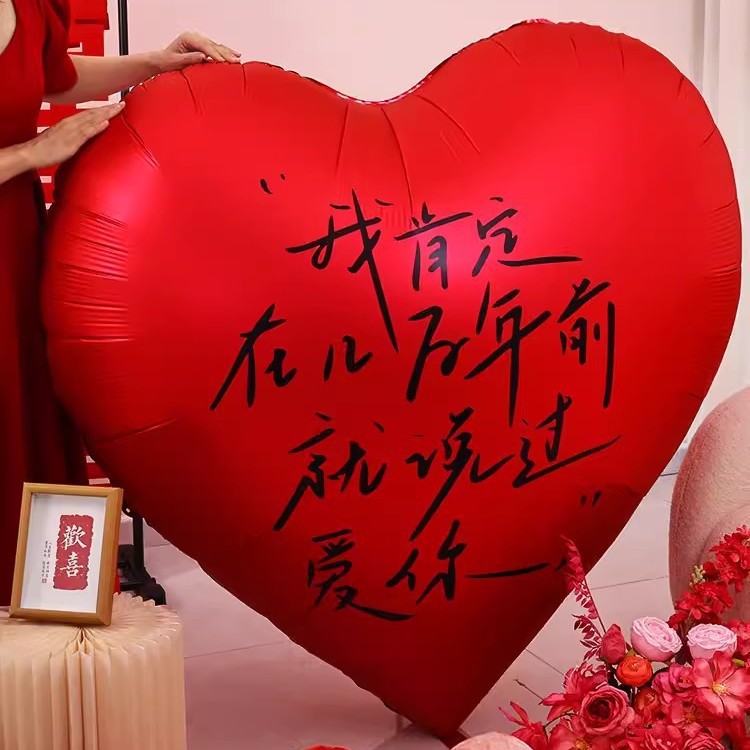 “我肯定
在几百年前
就说过
爱你”
歡喜